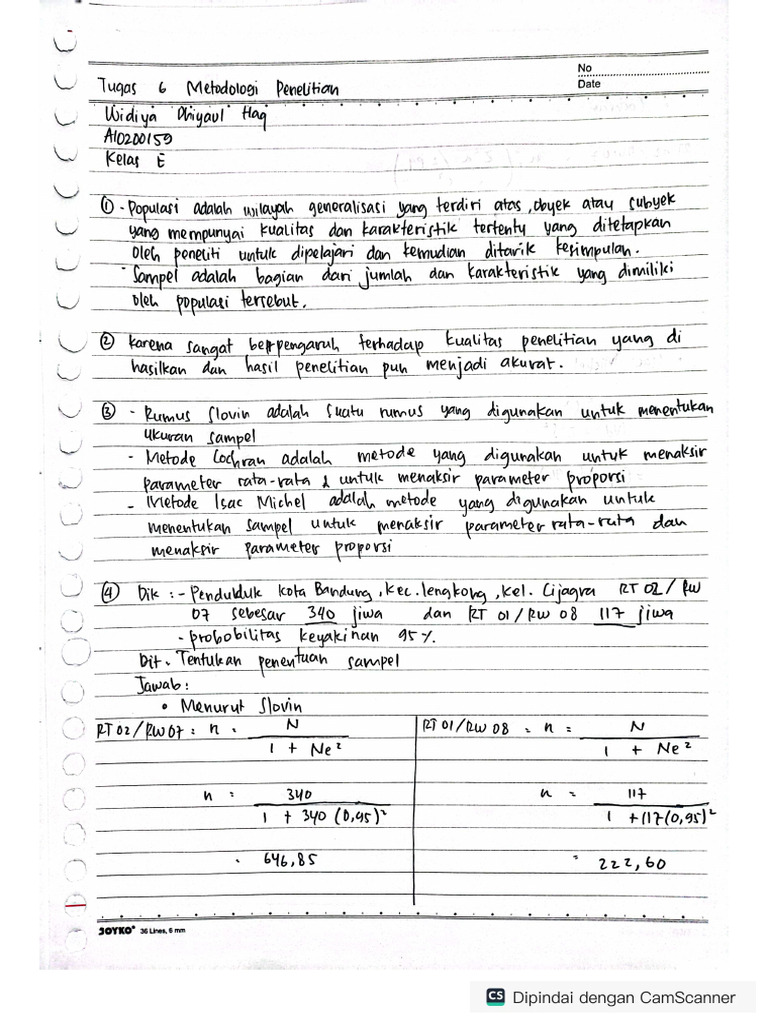 No
Date
Tugas 6 Metodologi Penelitian
Widiya Dhiyaul Haq
A10200159
Kelas E
① - Populasi adalah wilayah generalisasi yang terdiri atas, obyek atau subyek
yang mempunyai kualitas dan karakteristik tertentu yang ditetapkan
oleh peneliti untuk dipelajari dan kemudian ditarik kesimpulan.
- Sampel adalah bagian dari jumlah dan karakteristik yang dimiliki
oleh populasi tersebut.
② Karena sangat berpengaruh terhadap kualitas penelitian yang di
hasilkan dan hasil penelitian pun menjadi akurat.
③ - Rumus Slovin adalah suatu rumus yang digunakan untuk menentukan
ukuran sampel
- Metode Cochran adalah metode yang digunakan untuk menaksir
parameter rata-rata & untuk menaksir parameter proporsi
- Metode Isac Michel adalah metode yang digunakan untuk
menentukan sampel untuk menaksir parameter rata-rata dan
menaksir parameter proporsi
④ Dik : - Penduduk kota Bandung, kec. lengkong, kel. Cijagra RT 02 / RW
07 sebesar 340 jiwa dan RT 01 / RW 08 117 jiwa
- probobilitas keyakinan 95 %.
Dit. Tentukan penentuan sampel
Jawab :
• Menurut Slovin
RT 02 / RW 07 = n = N
1 + Ne²
n = 340
1 + 340 (0,95)²
= 646,85
RT 01 / RW 08 = n = N
1 + Ne²
n = 117
1 + 117 (0,95)²
= 222,60
JOYKO 36 Lines, 6 mm
CS Dipindai dengan CamScanner